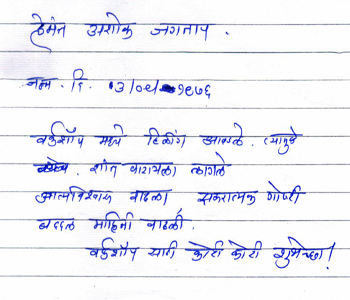 हेमंत अशोक जगताप.
जन्म. दि. ०३/०८/१९७६
वर्कशॉप मध्ये हिलींग आवडले. त्यामुळे
शांत वाटायला लागले
आत्मविश्वास वाढला सकारात्मक गोष्टी
बद्दल माहिती वाढली.
वर्कशॉप साठी कोटी कोटी शुभेच्छा!